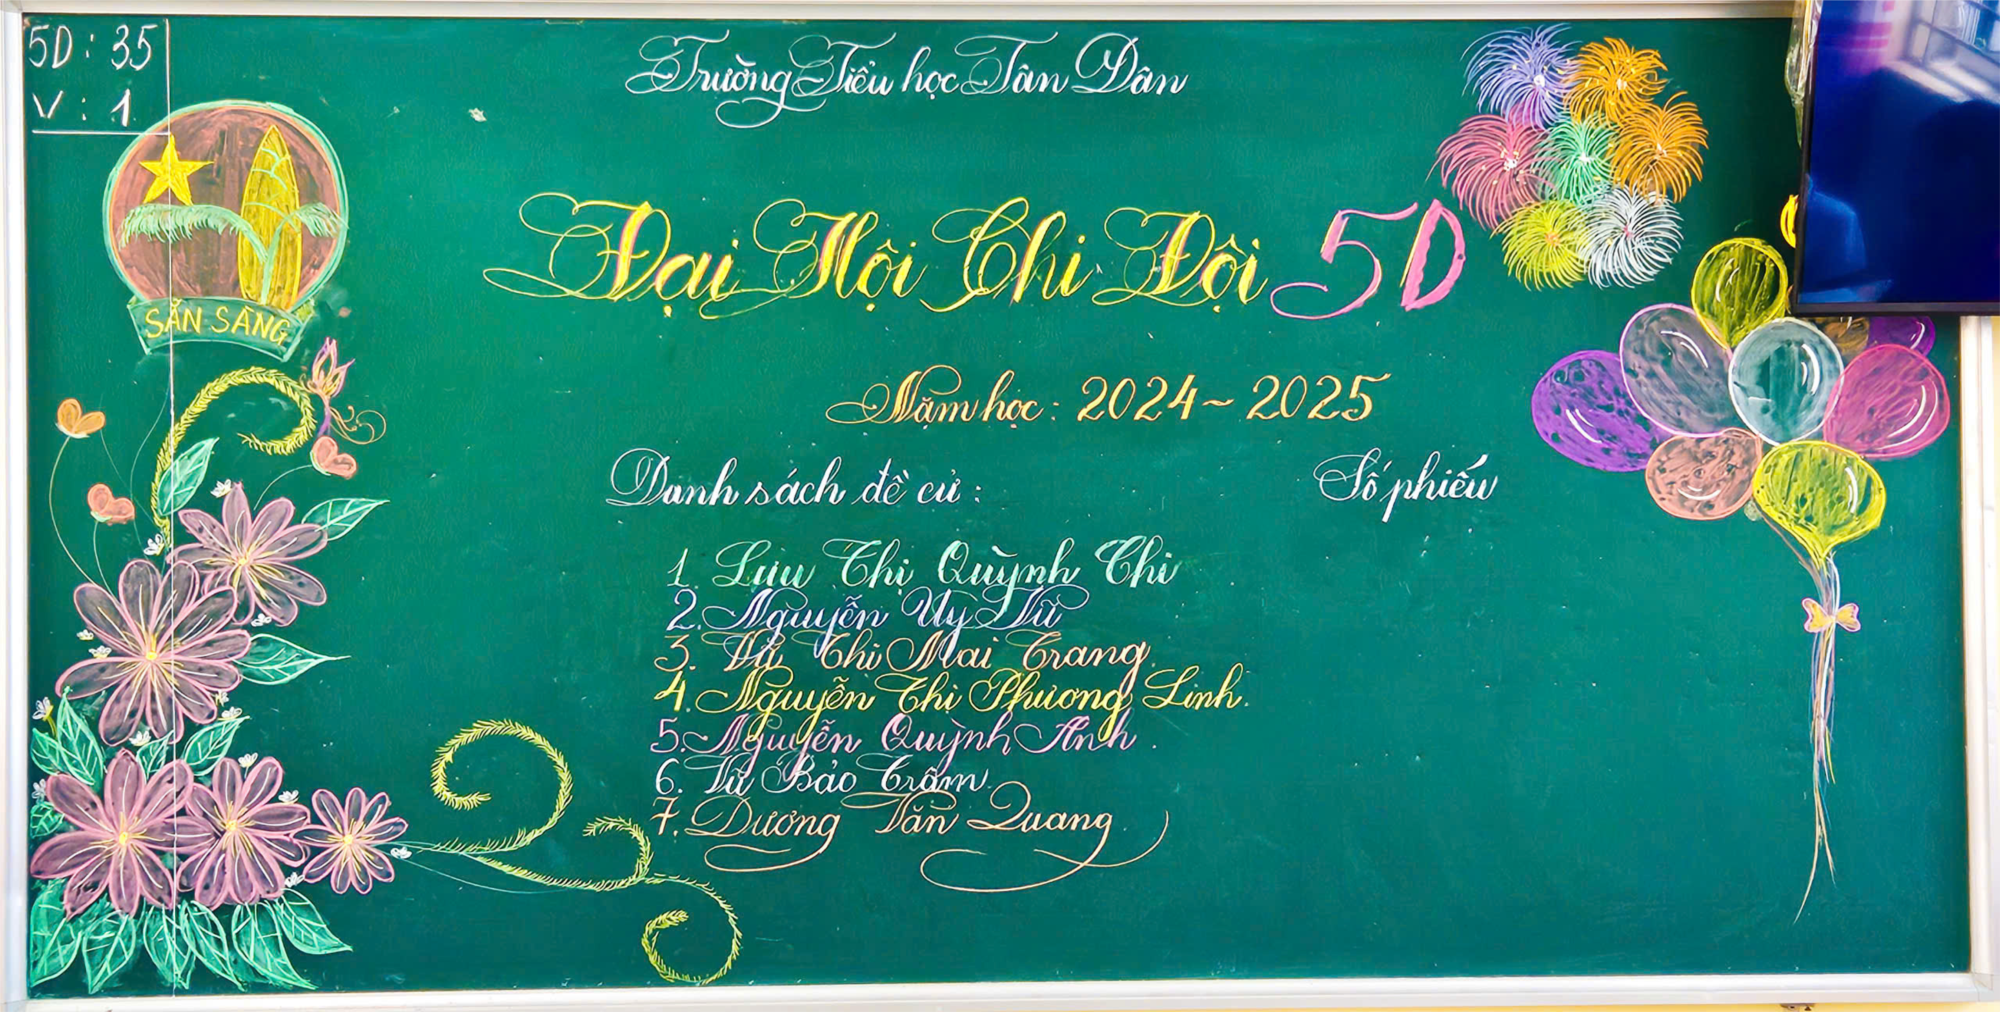 5D : 35
V : 1
Trường Tiểu học Tân Dân
Đại Hội Chi Đội 5D
SẴN SÀNG
Năm học: 2024 ~ 2025
Danh sách đề cử : Số phiếu
1. Lưu Thị Quỳnh Chi
2. Nguyễn Uy Vũ
3. Vũ Thị Mai Trang.
4. Nguyễn Thị Phương Linh.
5. Nguyễn Quỳnh Anh.
6. Vũ Bảo Trâm.
7. Dương Văn Quang.